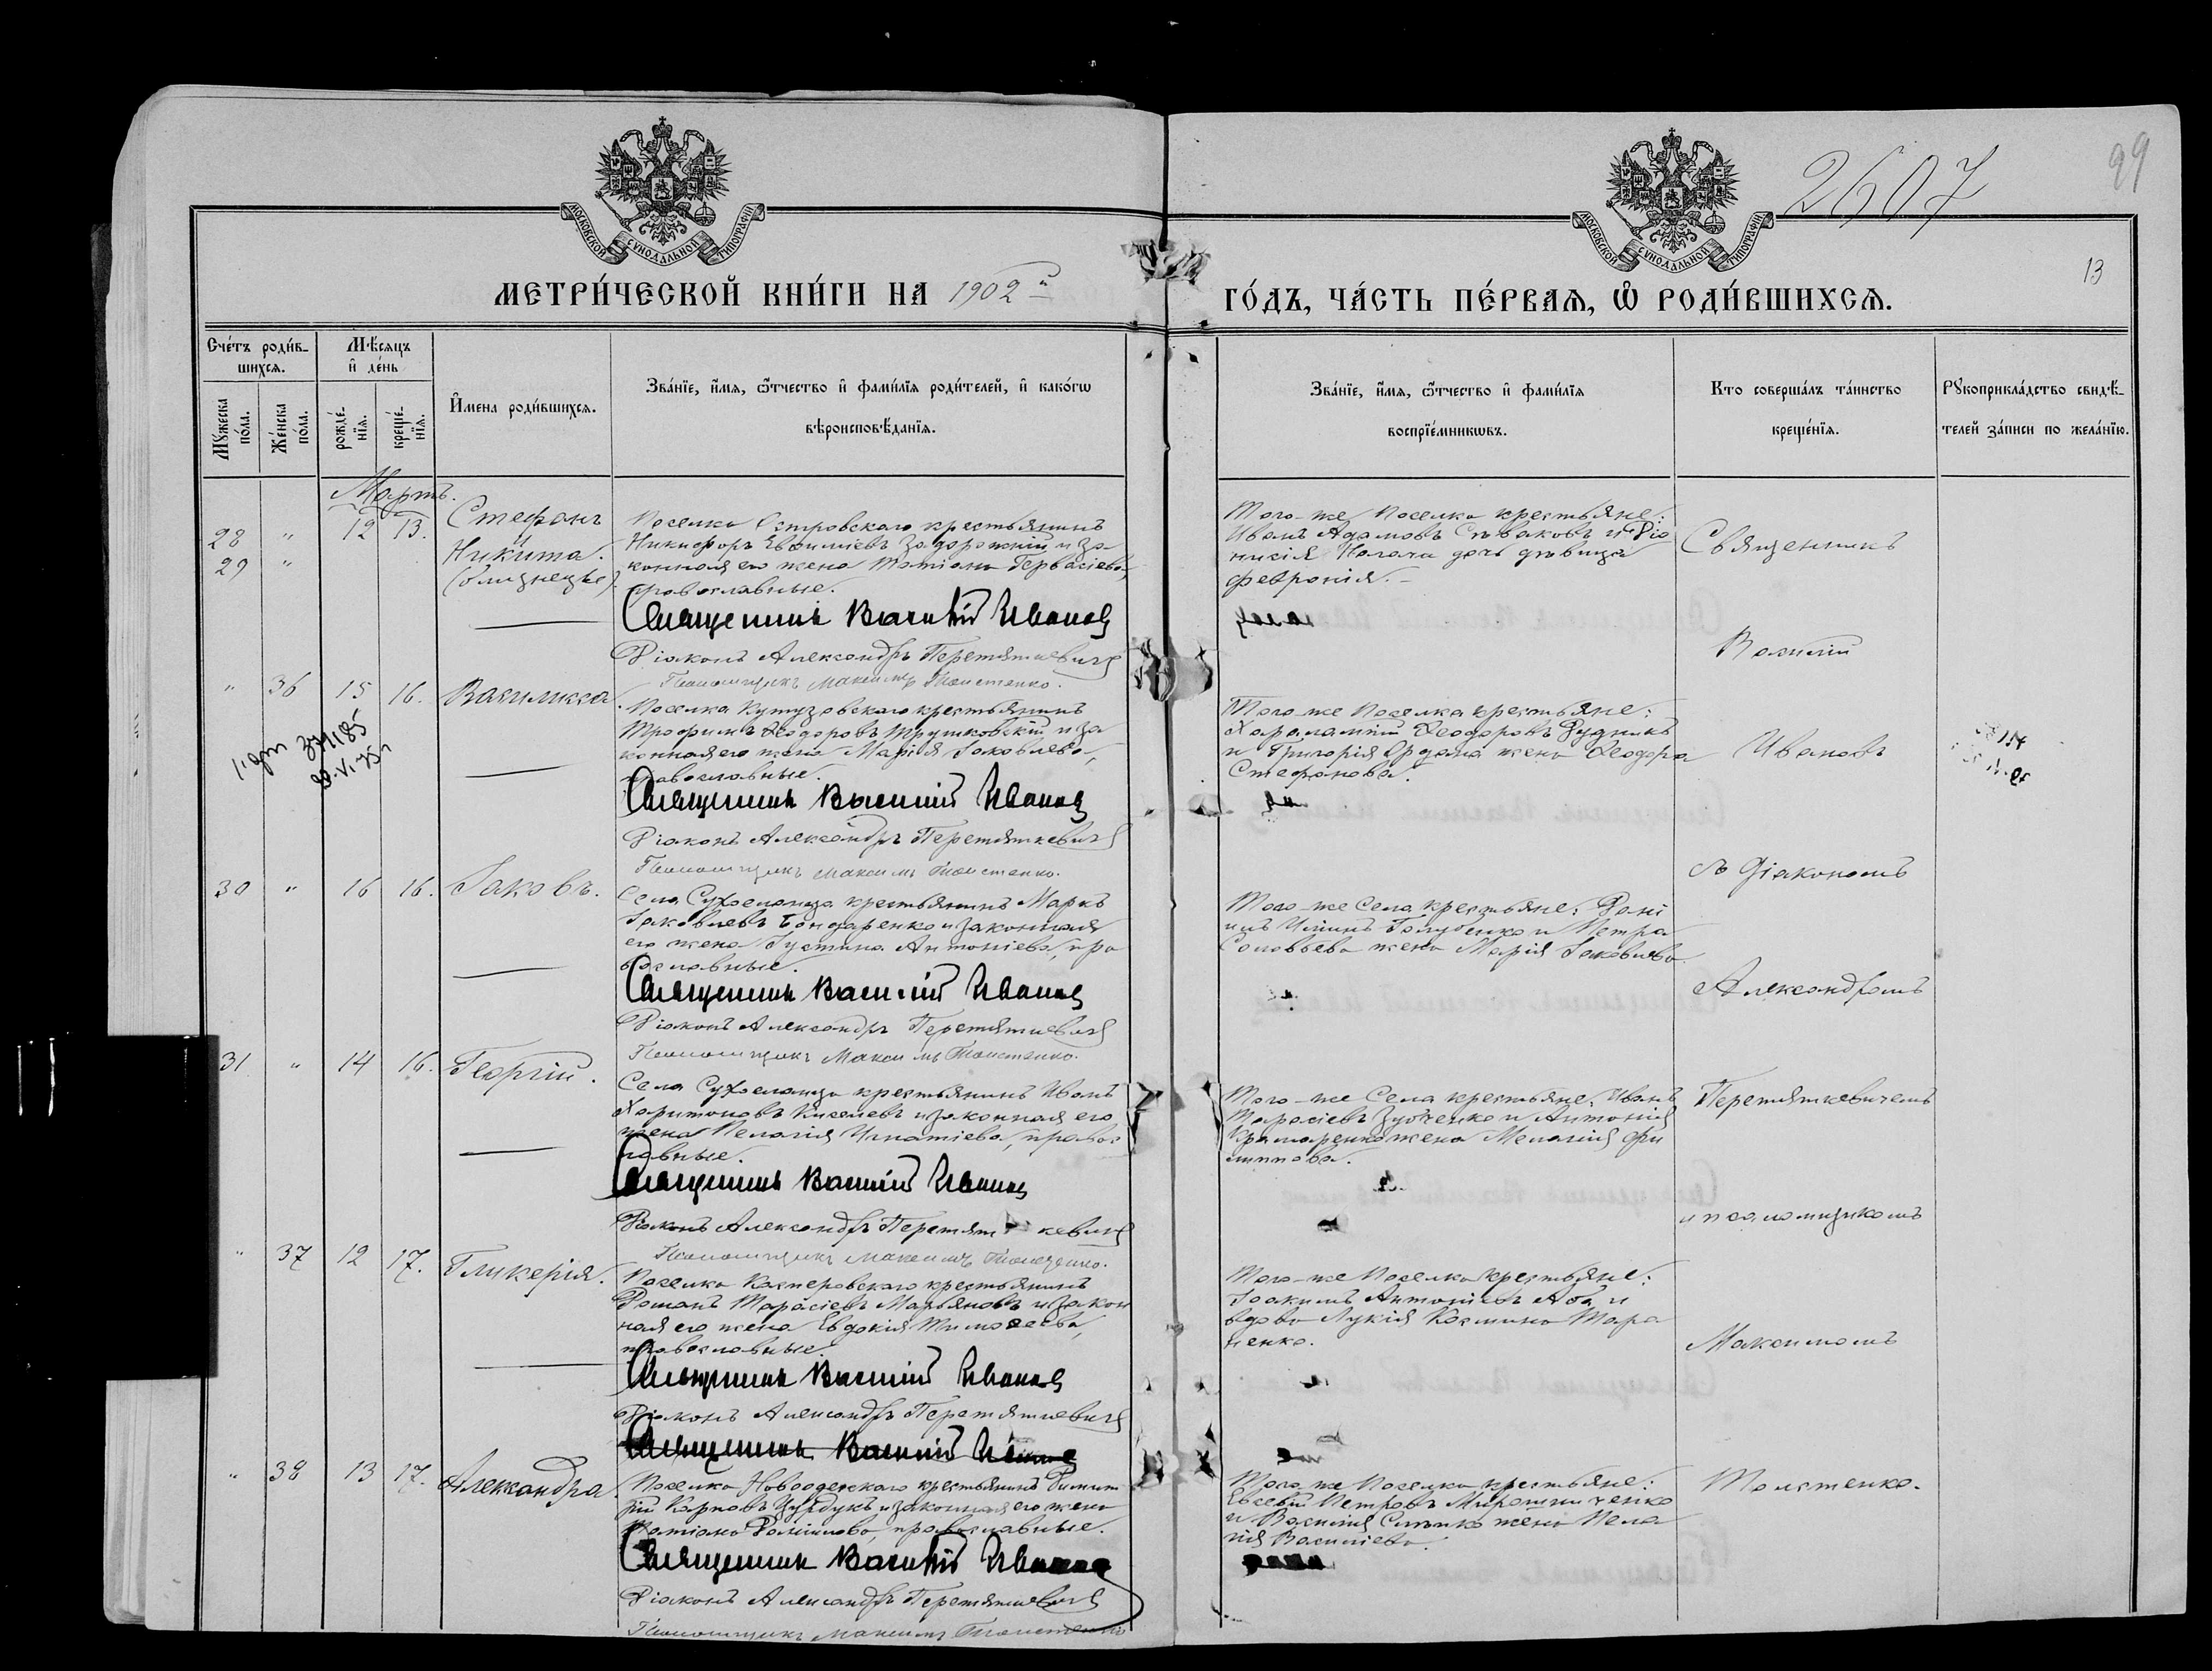 2607
99
13
МОСКОВСКОЙ СѴНОДАЛЬНОЙ ТИПОГРАФІИ
МОСКОВСКОЙ СѴНОДАЛЬНОЙ ТИПОГРАФІИ
МЕТРИ́ЧЕСКОЙ КНИ́ГИ НА 1902й
ГО́ДЪ, ЧА́СТЬ ПЕ́РВАЯ, Ѡ҆ РОДИ́ВШИХСЯ.
Сче́тъ роди́в-
шихся.
Мѣ́сяцъ
и҆ де́нь
Мꙋ́жеска по́ла.
Же́нска по́ла.
рожде́-
нїя.
креще́-
нїя.
И҆мена роди́вшихся.
Зва́нїе, и҆́мя, ѻ҆́тчество и҆ фами́лїя роди́телей, и҆ како́гѡ
вѣроисповѣ́данїя.
Зва́нїе, и҆́мя, ѻ҆́тчество и҆ фами́лїя
воспрїе́мникѡвъ.
Кто соверша́лъ та́инство
креще́нїя.
Рꙋкоприкла́дство свидѣ́-
телей за́писи по жела́нїю.
Мартъ.
28 " 12 13. Стефанъ
и
29 " Никита.
(близнецы).
Поселка Островскаго крестьянинъ
Никифоръ Евфиміевъ Запорожскій и за
конная его жена Татіана Гервасіева,
православные.
Священникъ Василій Ивановъ
Діаконъ Александръ Перетяткевичъ
Псаломщикъ Максимъ Толстенко.
Того-же поселка крестьяне:
Иванъ Адамовъ Спѣваковъ и Діо
нисія Палача дочь дѣвица
Февронія.
" 36 15 16. Василисса.
Поселка Кутузовскаго крестьянинъ
Трофимъ Ѳеодоровъ Трушковскій и за
конная его жена Марія Іаковлева,
православные.
Священникъ Василій Ивановъ
Діаконъ Александръ Перетяткевичъ
Псаломщикъ Максимъ Толстенко.
Того-же поселка крестьяне:
Харалампій Ѳеодоровъ Рудникъ
и Григорія жена Ѳеодора
Стефанова.
30 " 16 16. Іаковъ.
Села Сухоеланца крестьянинъ Маркъ
Іаковлевъ Бондаренко и законная
его жена Іустина Антоніева, пра
вославные.
Священникъ Василій Ивановъ
Діаконъ Александръ Перетяткевичъ
Псаломщикъ Максимъ Толстенко.
Того-же села крестьяне: Дані
илъ Ильинъ Голубенко и Петра
Соловьева жена Марія Іаковлева.
31 " 14 16. Георгій.
Села Сухоеланца крестьянинъ Иванъ
Харитоновъ Киселевъ и законная его
жена Пелагія Игнатіева, правос
лавные.
Священникъ Василій Ивановъ
Діаконъ Александръ Перетяткевичъ
Псаломщикъ Максимъ Толстенко.
Того-же села крестьяне: Иванъ
Тарасіевъ Зубченко и Антонія
Крамаренко жена Меланія Фи
липпова.
" 37 12 17. Гликерія.
Поселка Касперовскаго крестьянинъ
Романъ Тарасіевъ Марьяновъ и закон
ная его жена Евдокія Тимоѳеева,
православные.
Священникъ Василій Ивановъ
Діаконъ Александръ Перетяткевичъ
Священникъ Василій Ивановъ
Того-же поселка крестьяне:
Іоакимъ Антоніевъ Аба и
вдова Лукія Космина Тара
ненко.
" 38 13 17. Александра
Поселка Новоодесскаго крестьянинъ Димит
рій Карповъ и законная его жена
Татіана Даніилова, православные.
Священникъ Василій Ивановъ
Діаконъ Александръ Перетяткевичъ
Псаломщикъ Максимъ Толстенко
Того же поселка крестьяне:
Евсевій Петровъ Мирошниченко
и Василія жена Пела
гія Василіева.
Священникъ
Василій
Ивановъ
съ діакономъ
Александромъ
Перетяткевичемъ
и псаломщикомъ
Максимомъ
Толстенко.